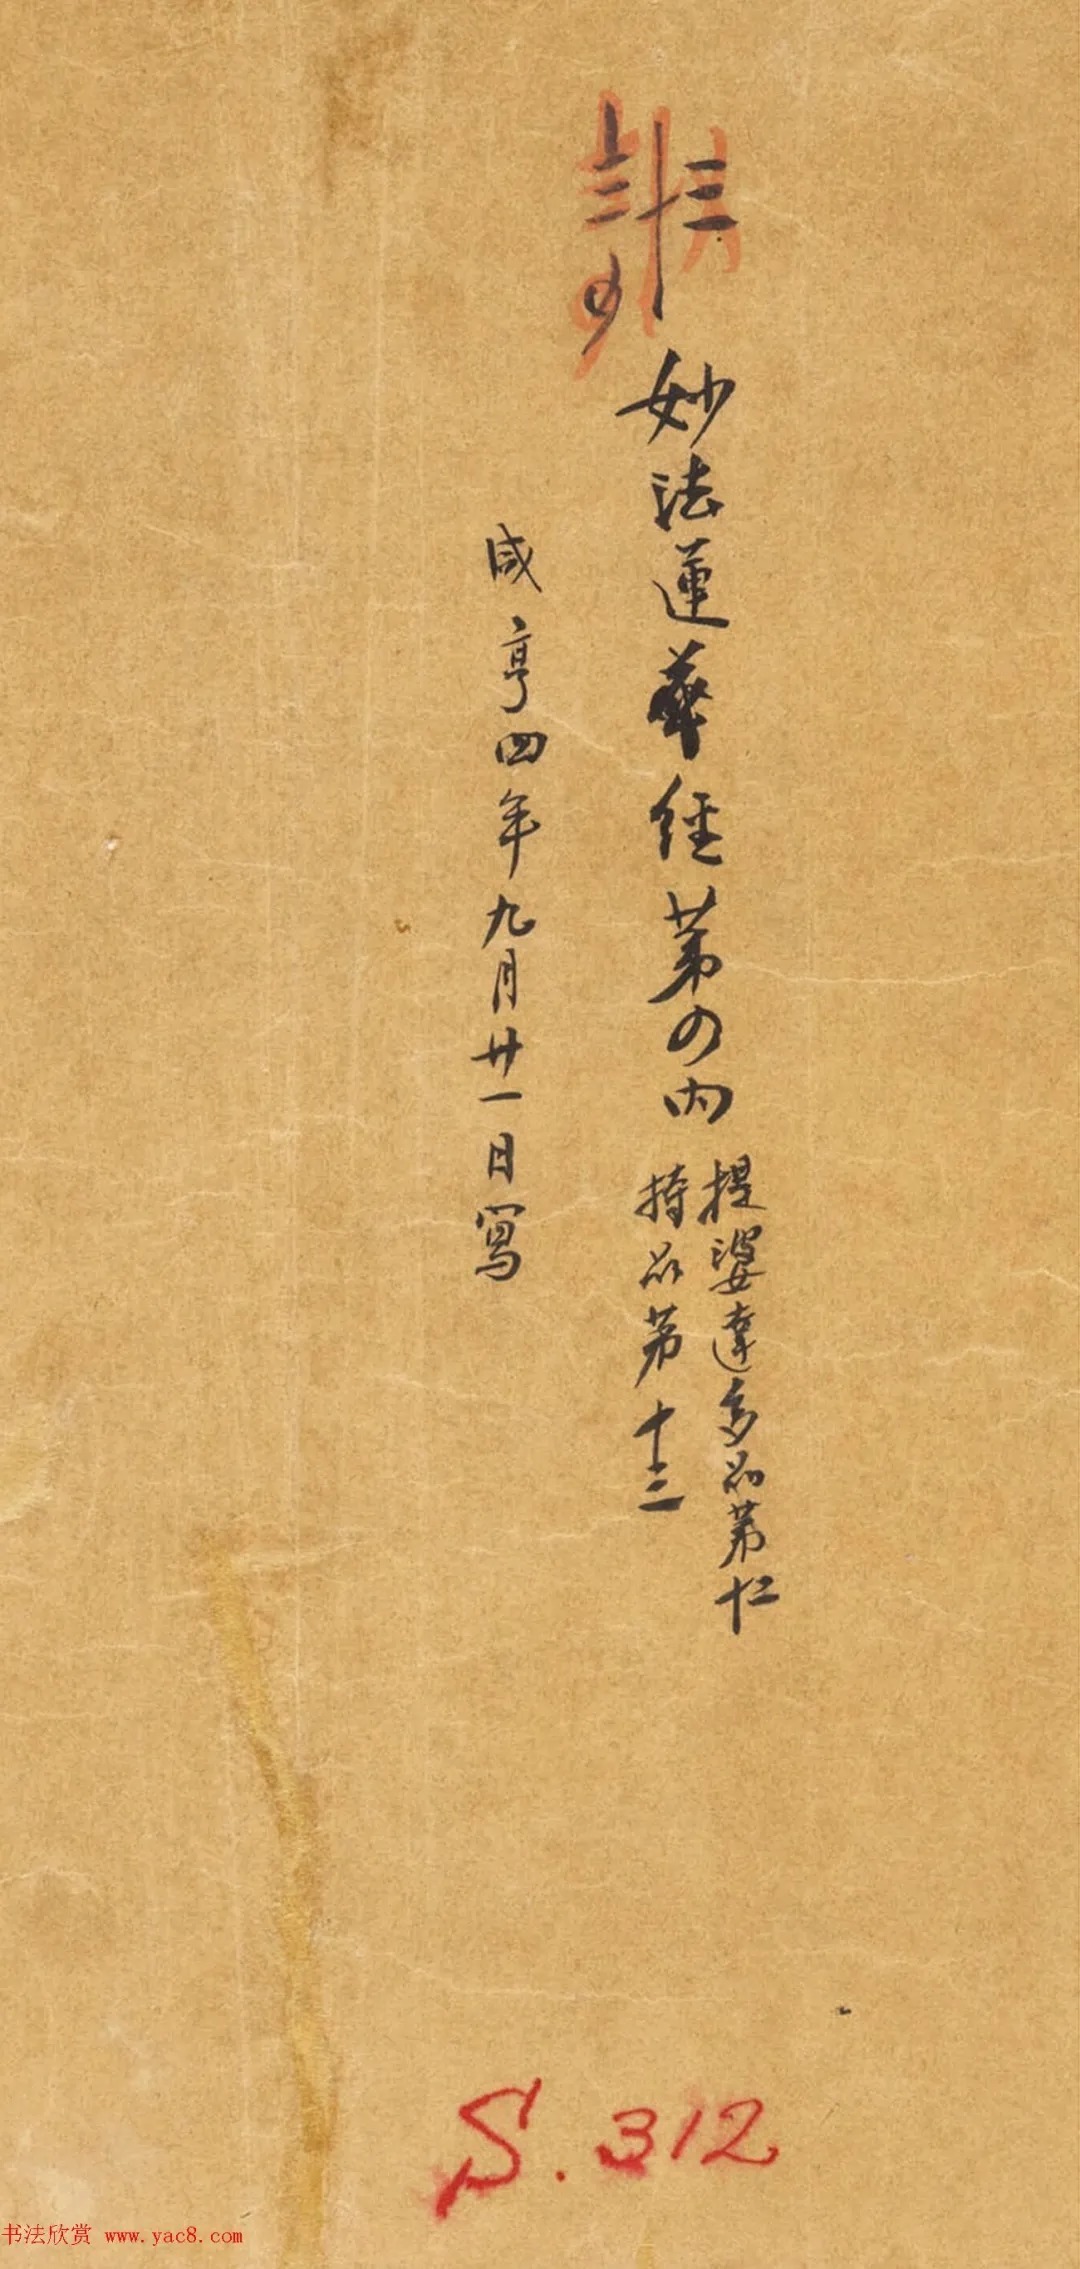 妙法蓮華經第四内
提婆達多品第十二
持品第十三
咸亨四年九月廿一日寫
S. 312
书法欣赏 www.yac8.com